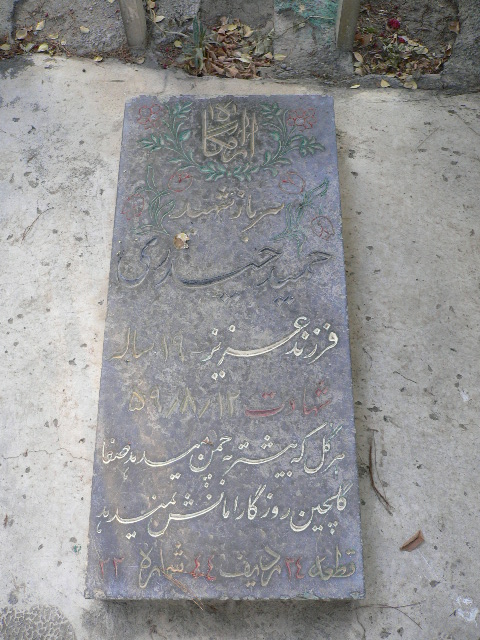 آرامگاه
سرباز شهید
حمید حیدری
فرزند عزیز ۱۹ ساله
شهادت ۵۹/۸/۱۲
هر گل که بیشتر به چمن میدهد صفا
گلچین روزگار امانش نمیدهد
قطعه ۲۴ ردیف ۴۴ شماره ۲۲